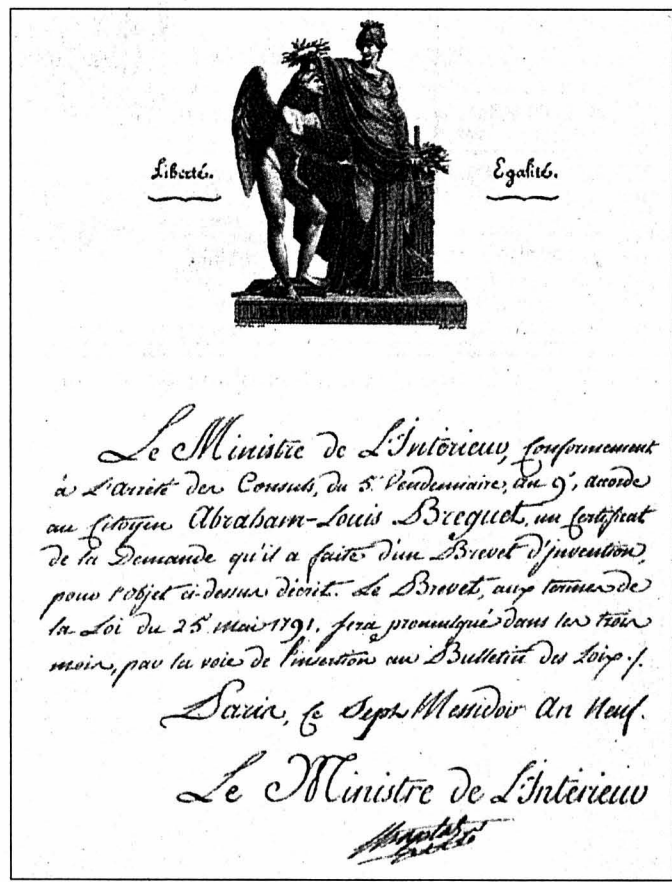 Liberté.
Egalité.
Le Ministre de L'Intérieur, Conformément
à L'Arrêté des Consuls, du 5e Vendemiaire, an 9e, accorde
au Citoyen Abraham-Louis Breguet, un Certificat
de la Demande qu'il a faite d'un Brevet d'invention,
pour l'objet ci-dessus décrit. Le Brevet, aux termes de
la Loi du 25 mai 1791. sera promulgué dans les trois
mois, par la voie de l'insertion au Bulletin des Loix./.
Paris, Ce Sept Messidor An Neuf.
Le Ministre de L'Intérieur
Chaptal